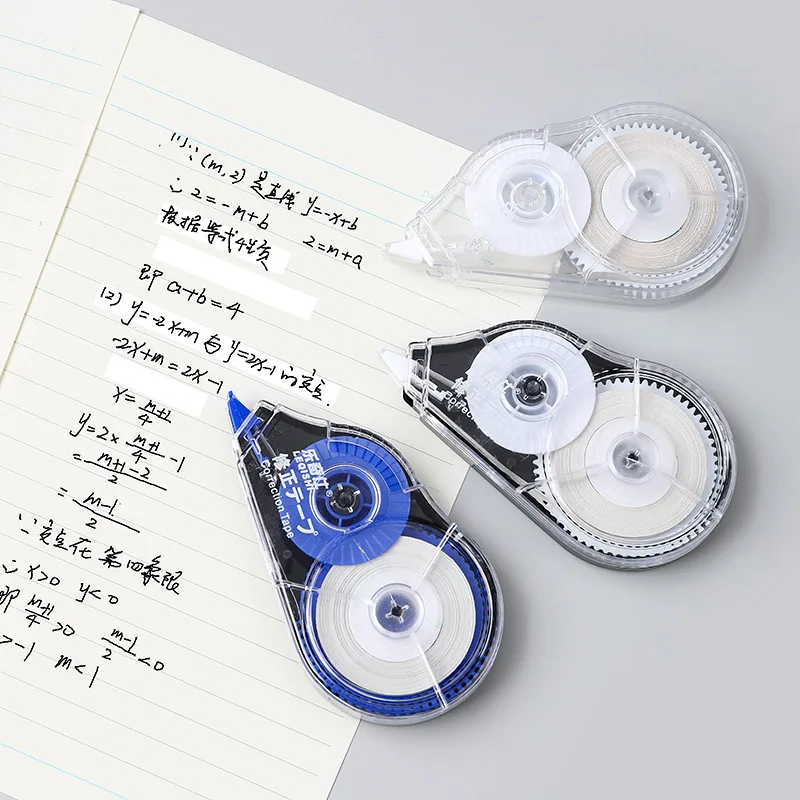 (m,2)是直线 y=-x+b
∴ 2=-m+b  2=m+a
根据等式性质
即 a+b=4
(2) y=-2x+m 与 y=2x-1 的交点.
-2x+m=2x-1
x=\frac{m+1}{4}
y=2x·\frac{m+1}{4}-1
=\frac{m+1-2}{2}
=\frac{m-1}{2}
∵交点在第四象限
∴ x>0 y<0
即 \frac{m+1}{4}>0 \frac{m-1}{2}<0
>-1 m<1
Correction
乐奇仕®
LEQISHI
修正テープ
Correction Tape